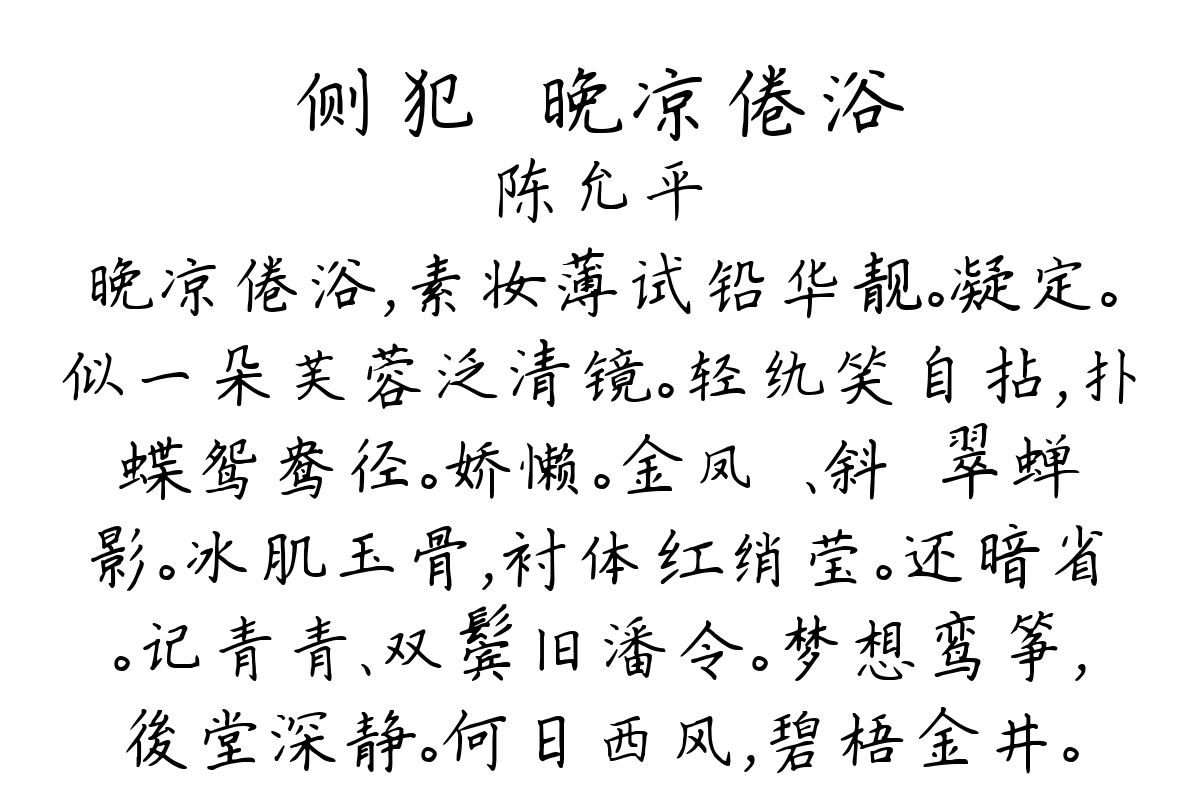 侧犯 晚凉倦浴
陈允平
晚凉倦浴,素妆薄试铅华靓。凝定。
似一朵芙蓉泛清镜。轻纨笑自拈,扑
蝶鸳鸯径。娇懒。金凤 、斜 翠蝉
影。冰肌玉骨,衬体红绡莹。还暗省
。记青青、双鬓旧潘令。梦想鸾筝,
後堂深静。何日西风,碧梧金井。